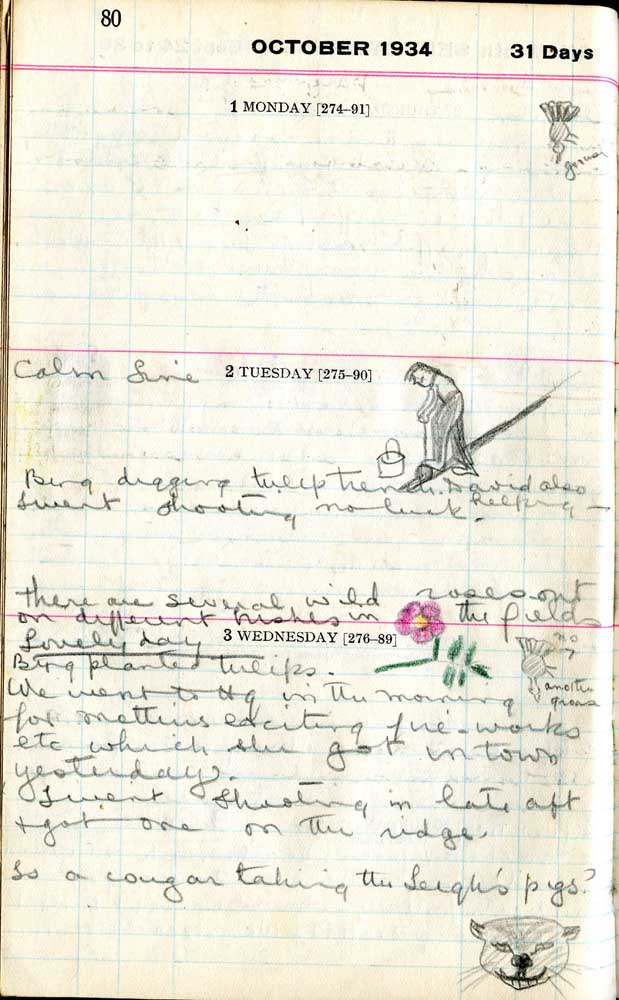 80
OCTOBER 1934 31 Days
1 MONDAY [274–91]
grouse
Calm Fine 2 TUESDAY [275–90]
Byng digging tulip trench. David also
helping –
I went shooting no luck.
There are several wild roses out
on different bushes in the fields
3 WEDNESDAY [276–89]
Lovely day
no 7
Byng planted tulips.
another grouse
We went to Hq in the morning
for mettins exciting fire-works
etc which she got in town
yesterday.
I went shooting in late aft
+ got one on the ridge.
Is a cougar taking the Leigh's pigs?